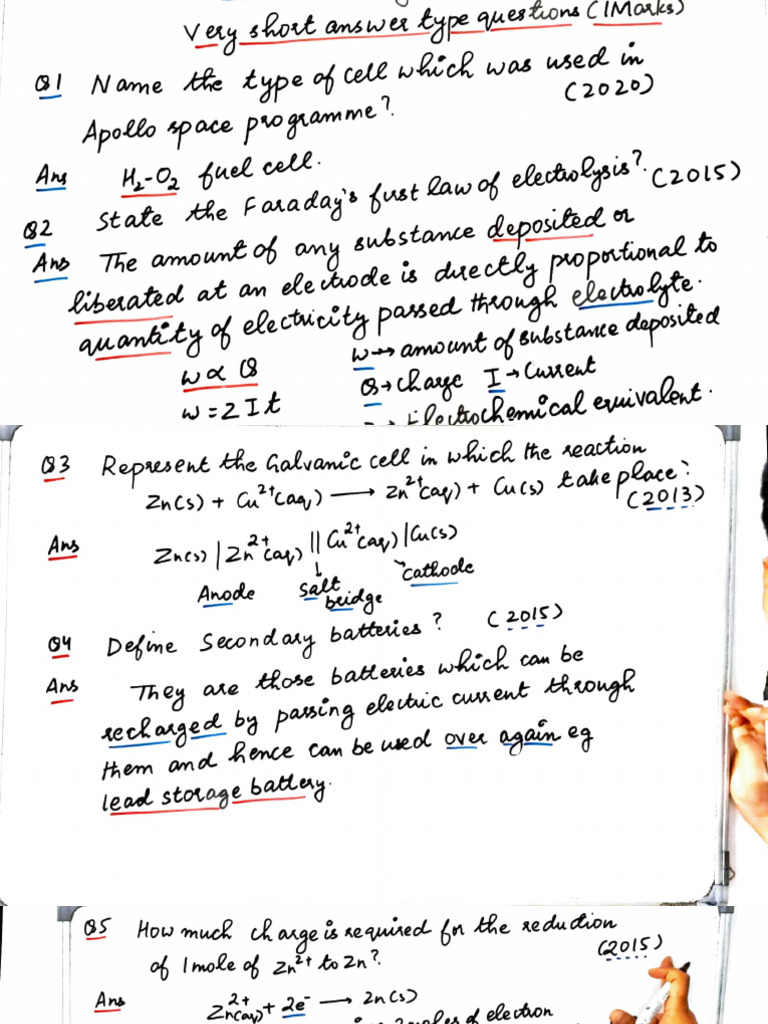 Very short answer type questions (1Marks)
Q1 Name the type of cell which was used in
Apollo space programme? (2020)
Ans H₂-O₂ fuel cell.
Q2 State the Faraday's first law of electrolysis? (2015)
Ans The amount of any substance deposited or
liberated at an electrode is directly proportional to
quantity of electricity passed through electrolyte.
w ∝ Q w → amount of substance deposited
w = Z I t Q → charge I → Current
→ Electrochemical equivalent.
Q3 Represent the Galvanic cell in which the reaction
Zn(s) + Cu²⁺(aq) ⟶ Zn²⁺(aq) + Cu(s) take place?
(2013)
Ans Zn(s) | Zn²⁺(aq) || Cu²⁺(aq) | Cu(s)
Anode Salt bridge cathode
Q4 Define Secondary batteries? (2015)
Ans They are those batteries which can be
recharged by passing electric current through
them and hence can be used over again eg
lead storage battery.
Q5 How much charge is required for the redution
of 1 mole of Zn²⁺ to Zn? (2015)
Ans Zn²⁺(aq) + 2e⁻ ⟶ Zn(s)
2 moles of electron